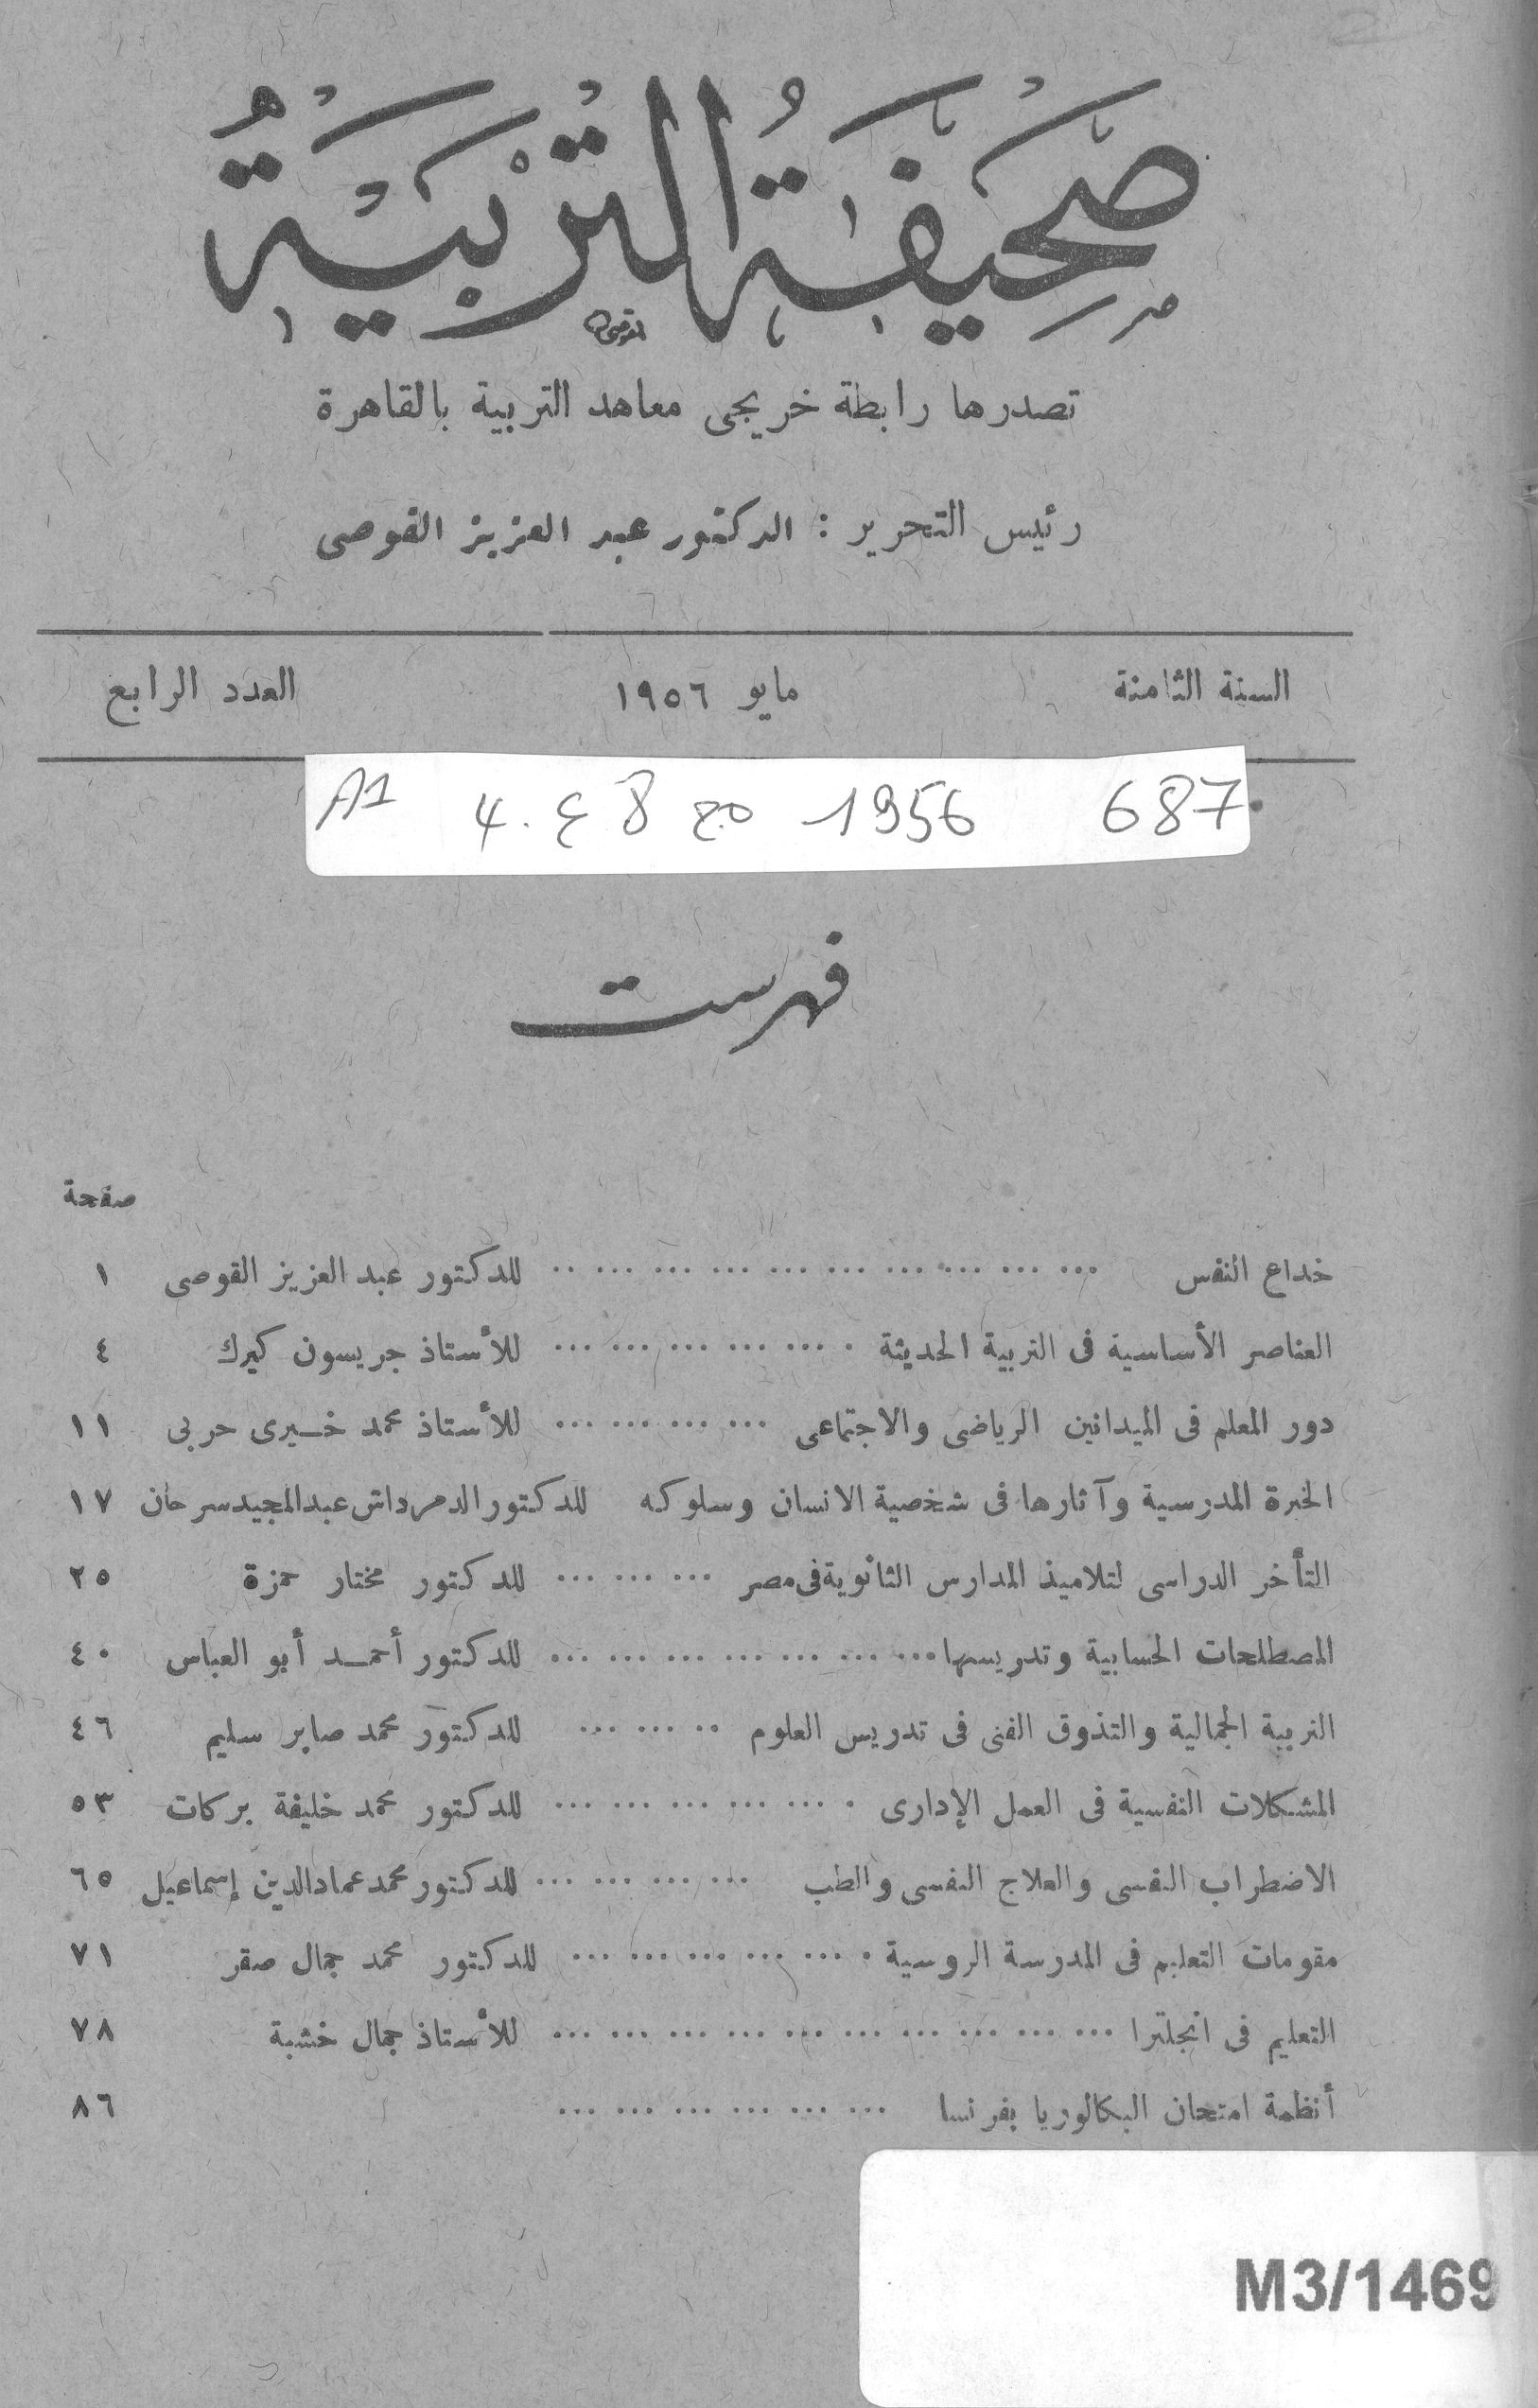 صَحِيفَةُ التَّرْبِيَةُ
تصدرها رابطة خريجى معاهد التربية بالقاهرة
رئيس التحرير : الدكتور عبد العزيز القوصى
السنة الثامنة مايو ١٩٥٦ العدد الرابع
687 1956 مج 8 ع . 4 A1
فهرست
صفحة
خداع النفس ... ... ... ... ... ... ... ... ... .. للدكتور عبد العزيز القوصى ١
العناصر الأساسية فى التربية الحديثة . ... ... ... ... ... للأستاذ جريسون كيرك ٤
دور المعلم فى الميدانين الرياضى والاجتماعى ... ... ... ... للأستاذ محمد خـيرى حربى ١١
الخبرة المدرسية وآثارها فى شخصية الانسان وسلوكه للدكتور الدمرداش عبدالمجيد سرحان ١٧
التأخر الدراسى لتلاميذ المدارس الثانوية فى مصر ... ... ... للدكتور مختار حمزة ٢٥
المصطلحات الحسابية وتدريسها ... ... ... ... ... ... ... للدكتور أحمـد أبو العباس ٤٠
التربية الجمالية والتذوق الفنى فى تدريس العلوم .. ... ... للدكتور محمد صابر سليم ٤٦
المشكلات النفسية فى العمل الإدارى . ... ... ... ... ... للدكتور محمد خليفة بركات ٥٣
الاضطراب النفسى والعلاج النفسى والطب ... ... ... ... للدكتور محمد عماد الدين إسماعيل ٦٥
مقومات التعليم فى المدرسة الروسية . ... ... ... ... ... للدكتور محمد جمال صقر ٧١
التعليم فى انجلترا ... ... ... ... ... ... ... ... ... ... للأستاذ جمال خشبة ٧٨
أنظمة امتحان البكالوريا بفرنسا ... ... ... ... ... ... ٨٦
M3/1469